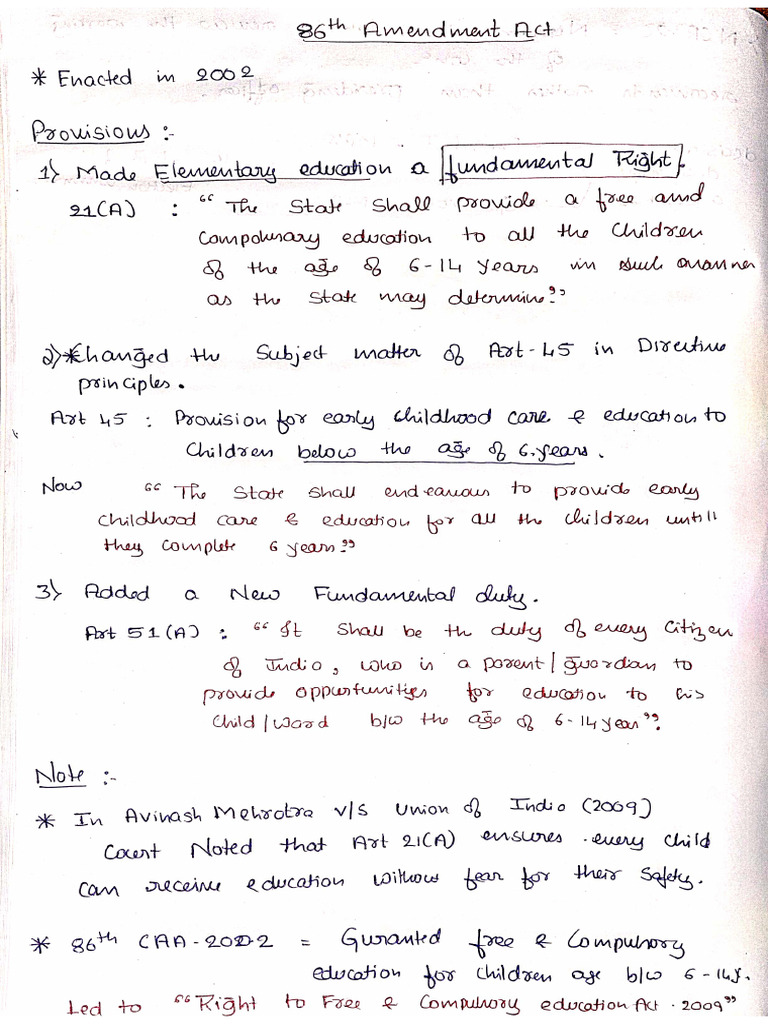 86th Amendment Act
* Enacted in 2002
Provisions :-
1) Made Elementary education a fundamental Right.
21(A) : "The State Shall provide a free and
Compolunary education to all the Children
of the age of 6-14 years in such manner
as the State may determine."
2) * Changed the Subject matter of Art-45 in Directive
principles.
Art 45 : Provision for early childhood care & education to
Children below the age of 6 years.
Now "The State shall endeavour to provide early
childhood care & education for all the children untill
they complete 6 years."
3) Added a New Fundamental duty.
Art 51(A) : "It Shall be th duty of every Citizen
of India, who is a parent/guardian to
provide oppurtunities for education to his
Child/Ward b/w the age of 6-14 year".
Note :-
* In Avinash Mehrotra v/s Union of India (2009)
Court Noted that Art 21(A) ensures every child
can receive education without fear for their safety.
* 86th CAA-2002 = Guranted free & Compulsory
education for children age b/w 6-14y.
Led to "Right to Free & Compulsory education Act. 2009"